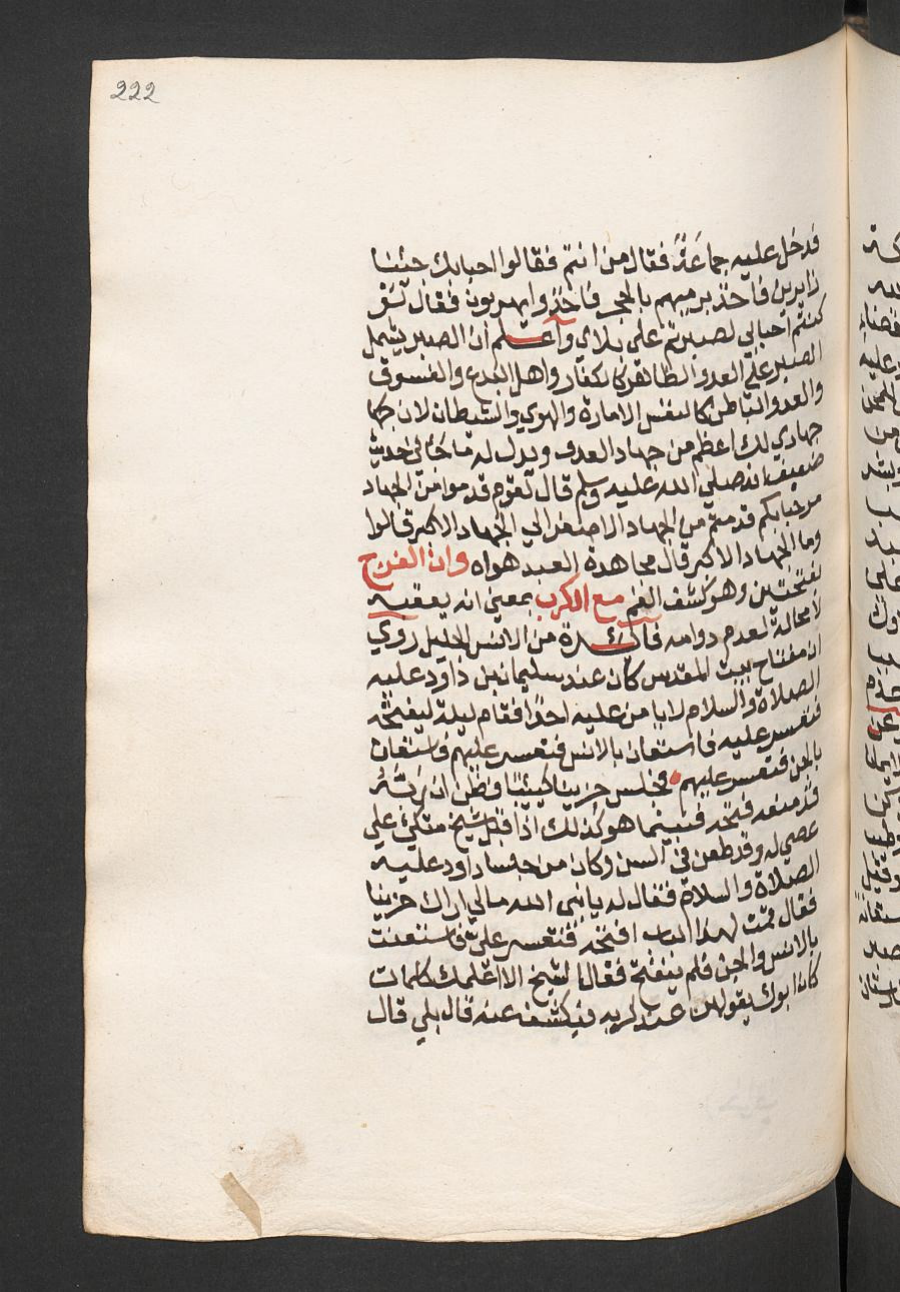 222
فدخل عليه جماعة فقال من انتم فقالوا احبابك جئنا
زايرين فاخذ يرميهم بالحجر فاخذوا يهربون فقال لو
كنتم احبابي لصبرتم على بلاي واعلم ان الصبر يشمل
الصبر على العدو الظاهر كالكفار واهل البدع والفسوق
والعدو الباطن كالنفس الامارة والهوي والشيطان لان
جهادي لك اعظم من جهاد العدو ويدل له ما جا في حديث
ضعيف انه صلي الله عليه وسلم قال لقوم قدموا من الجهاد
مرحبا بكم قدمتم من الجهاد الاصغر الي الجهاد الاكبر قالوا
وما الجهاد الاكبر قال مجاهدة العبد هواه وان الفرج
بفتحتين وهو كشف الغم مع الكرب بمعني انه يعقبه
لا محالة لعدم دوامه فايدة من الانس الجليل روي
ان مفتاح بيت المقدس كان عند سليمان بن داود عليه
الصلاة والسلام لا يامن عليه احدا فقام ليلة ليفتحه
فتعسر عليه فاستعان بالانس فتعسر عليهم فاستعان
بالجن فتعسر عليهم فجلس حزينا كييبا وظن ان ربه
قد منعه فتحه فبينما هو كذلك اذ اقبل شيخ متكئ علي
عصي له وقد طعن في السن وكان من جلسا داود عليه
الصلاة والسلام فقال له يا نبي الله مالي اراك حزينا
فقال قمت لهذا الباب افتحه فتعسر علي فاستعنت
بالانس والجن فلم ينفتح فقال الشيخ الا اعلمك كلمات
كان ابوك يقولهن عند كربه فيكشف عنه قال بلي قال